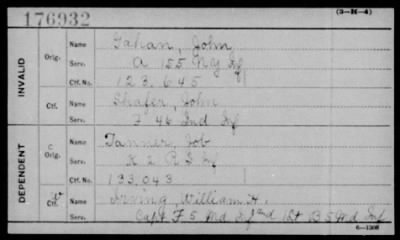 176932
(3—M—4)
INVALID
Orig.
Name Gahan, John
Serv. A 155 NY Inf
Ctf. No. 123,645
Ctf.
Name Shafer, John
Serv. F 46 Ind Inf
DEPENDENT
C
Orig.
Name Tanner, Job
Serv. K 2 R I Inf
Ctf. No. 133,043
Ctf.
Name Irving, William H.
Serv. Capt F 5 Md Inf and 1st B 5 Md Inf
6—1308